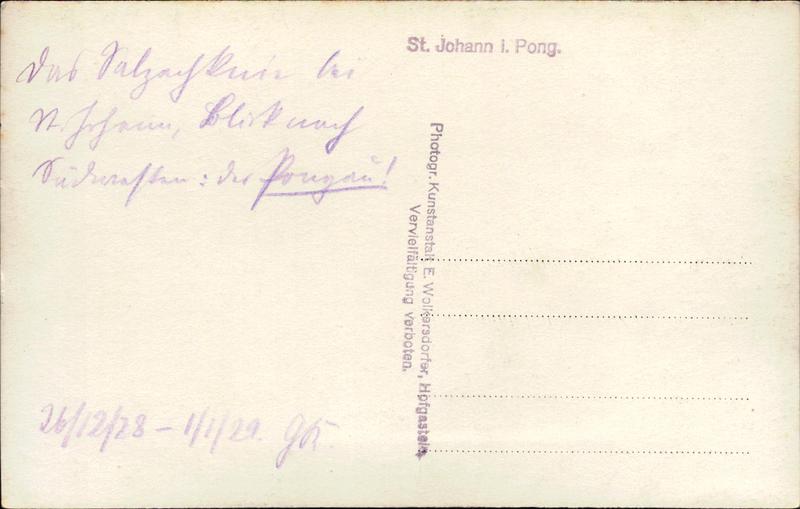 Das Salzachknie bei
St. Johann, Blick nach
Südwesten: der Pongau!
26/12/28 – 1/1/29.
St. Johann i. Pong.
Photogr. Kunstanstalt E. Wolkersdorfer, Hofgastein
Vervielfältigung verboten.